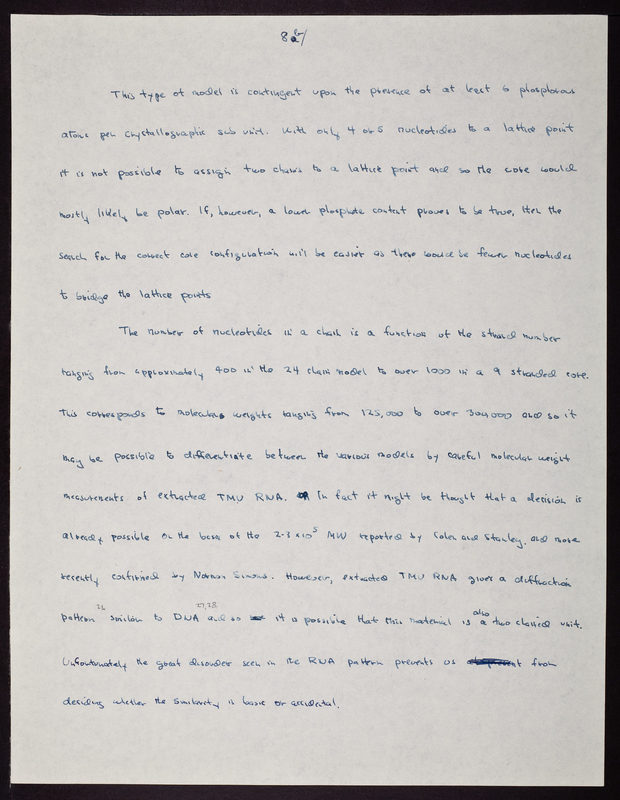 8b/
This type of model is contingent upon the presence of at least 6 phosphorous
atoms per crystallographic sub unit. With only 4 or 5 nucleotides to a lattice point
it is not possible to assign two chains to a lattice point and so the core would
mostly likely be polar. If, however, a lower phosphate content proves to be true, then the
search for the correct core configuration will be easier as there would be fewer nucleotides
to bridge the lattice points
The number of nucleotides in a chain is a function of the strand number
ranging from approximately 400 in the 24 chain model to over 1000 in a 9 stranded core.
This corresponds to molecular weights ranging from 125,000 to over 300,000 and so it
may be possible to differentiate between the various models by careful molecular weight
measurements of extracted TMV RNA. In fact it might be thought that a decision is
already possible on the basis of the 2-3 x 10⁵ MW reported by Cohen and Stanley, and more
recently confirmed by Norman Simmons. However, extracted TMV RNA gives a diffraction
pattern 26 similar to DNA 27,28 and so it is possible that this material is also a two chained unit.
Unfortunately the great disorder seen in the RNA pattern prevents us from
deciding whether the similarity is basic or accidental.